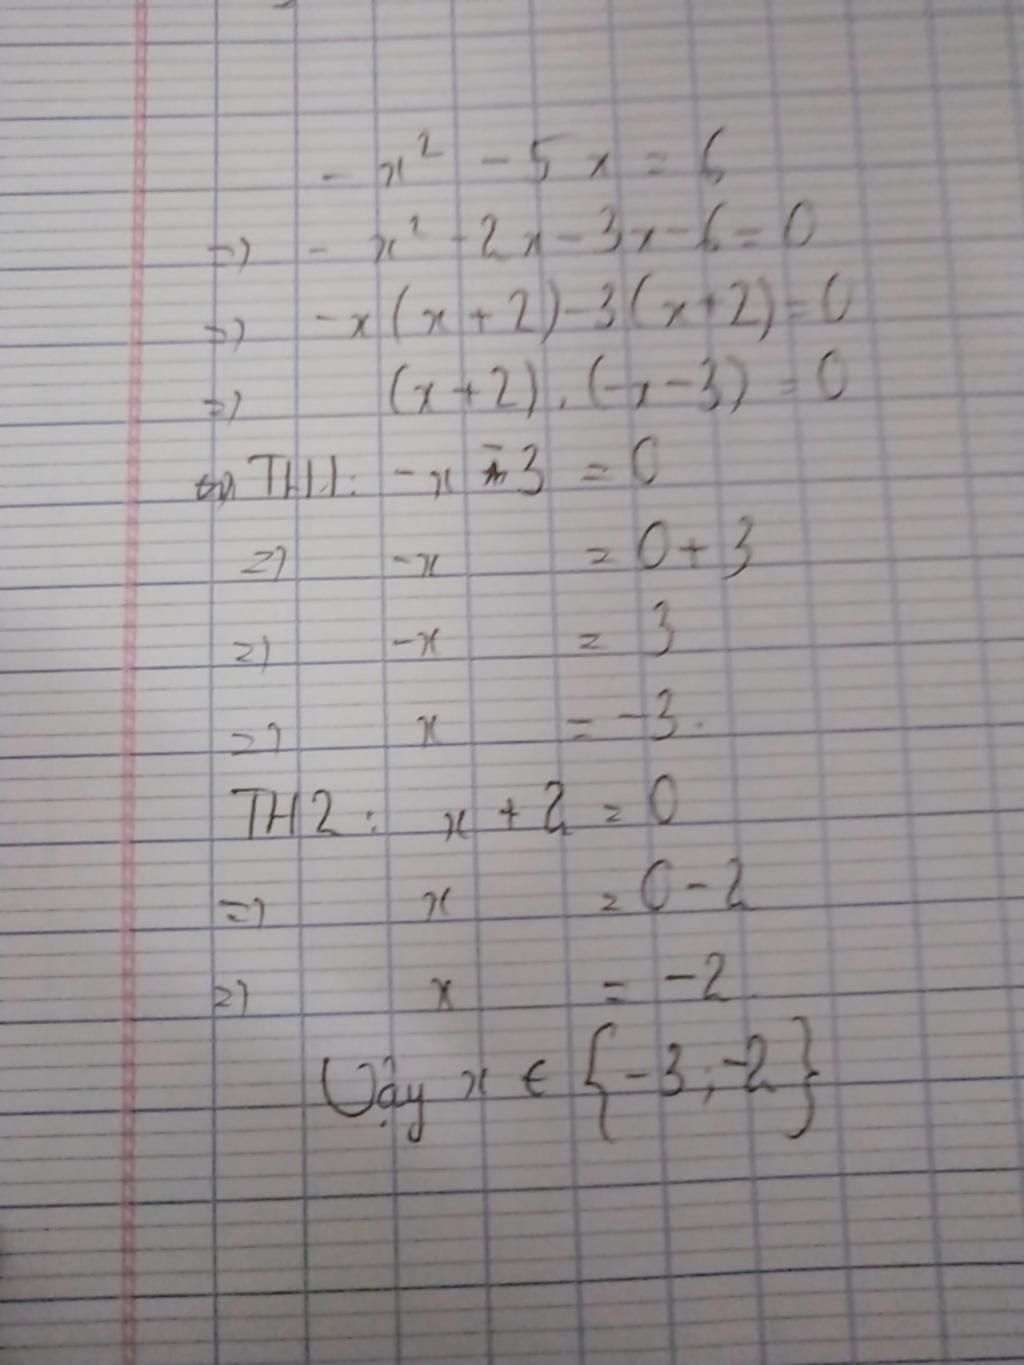 - x² - 5x = 6
=> - x² - 2x - 3x - 6 = 0
=> -x(x + 2) - 3(x + 2) = 0
=> (x + 2) . (-x - 3) = 0
TH1: -x - 3 = 0
=> -x = 0 + 3
=> -x = 3
=> x = -3.
TH2: x + 2 = 0
=> x = 0 - 2
=> x = -2.
Vậy x ∈ {-3; -2}